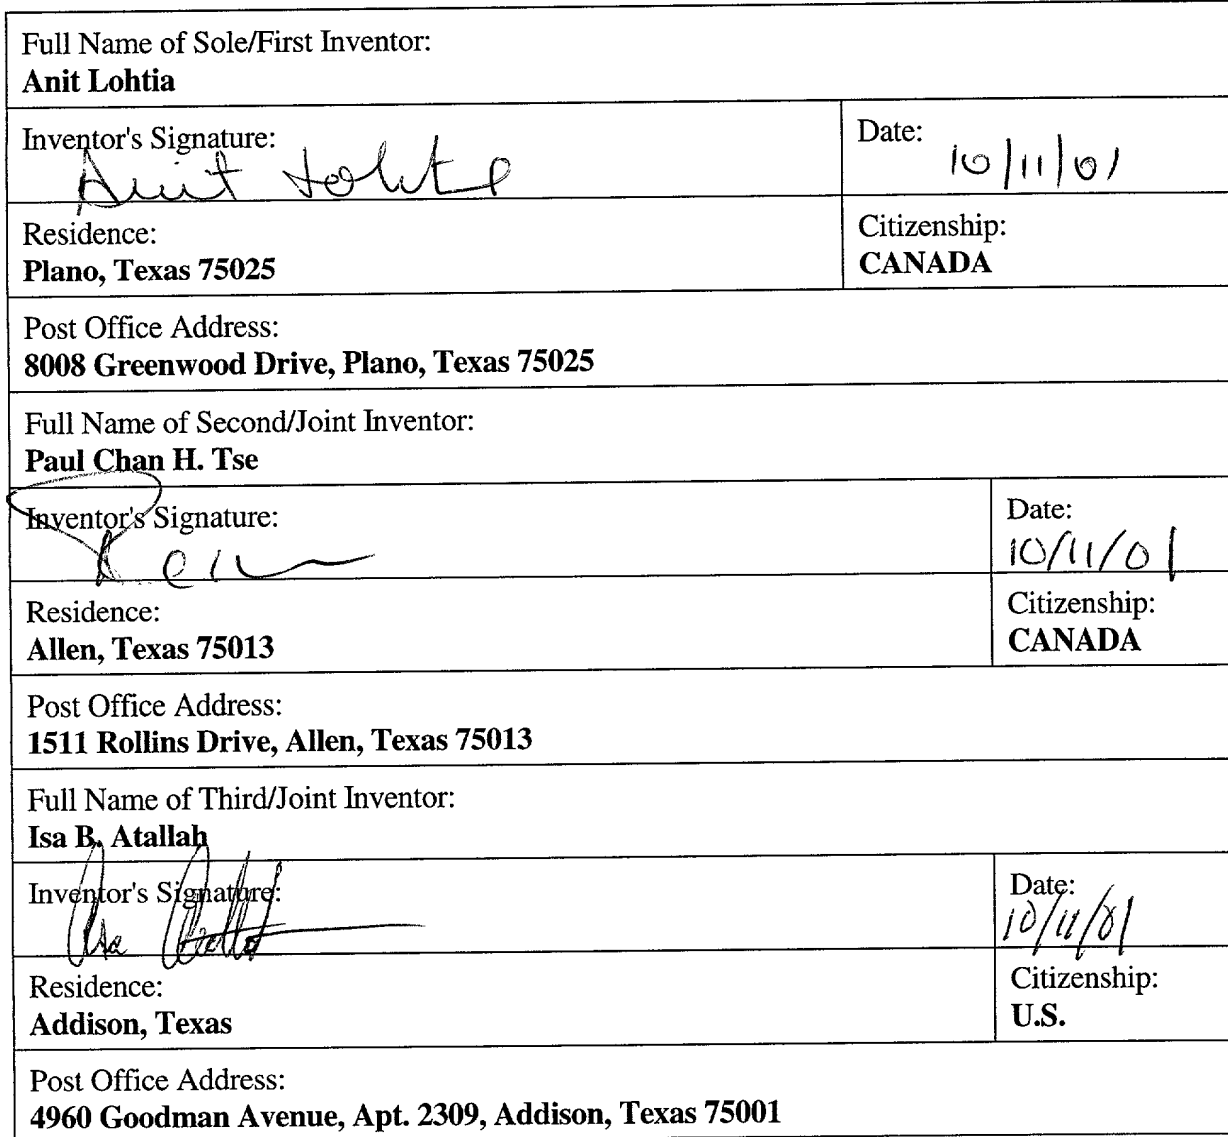 Full Name of Sole/First Inventor:
Anit Lohtia
Inventor's Signature:
Anit Lohtia
Date:
10/11/01
Residence:
Plano, Texas 75025
Citizenship:
CANADA
Post Office Address:
8008 Greenwood Drive, Plano, Texas 75025
Full Name of Second/Joint Inventor:
Paul Chan H. Tse
Inventor's Signature:
Date:
10/11/01
Residence:
Allen, Texas 75013
Citizenship:
CANADA
Post Office Address:
1511 Rollins Drive, Allen, Texas 75013
Full Name of Third/Joint Inventor:
Isa B. Atallah
Inventor's Signature:
Isa Atallah
Date:
10/11/01
Residence:
Addison, Texas
Citizenship:
U.S.
Post Office Address:
4960 Goodman Avenue, Apt. 2309, Addison, Texas 75001